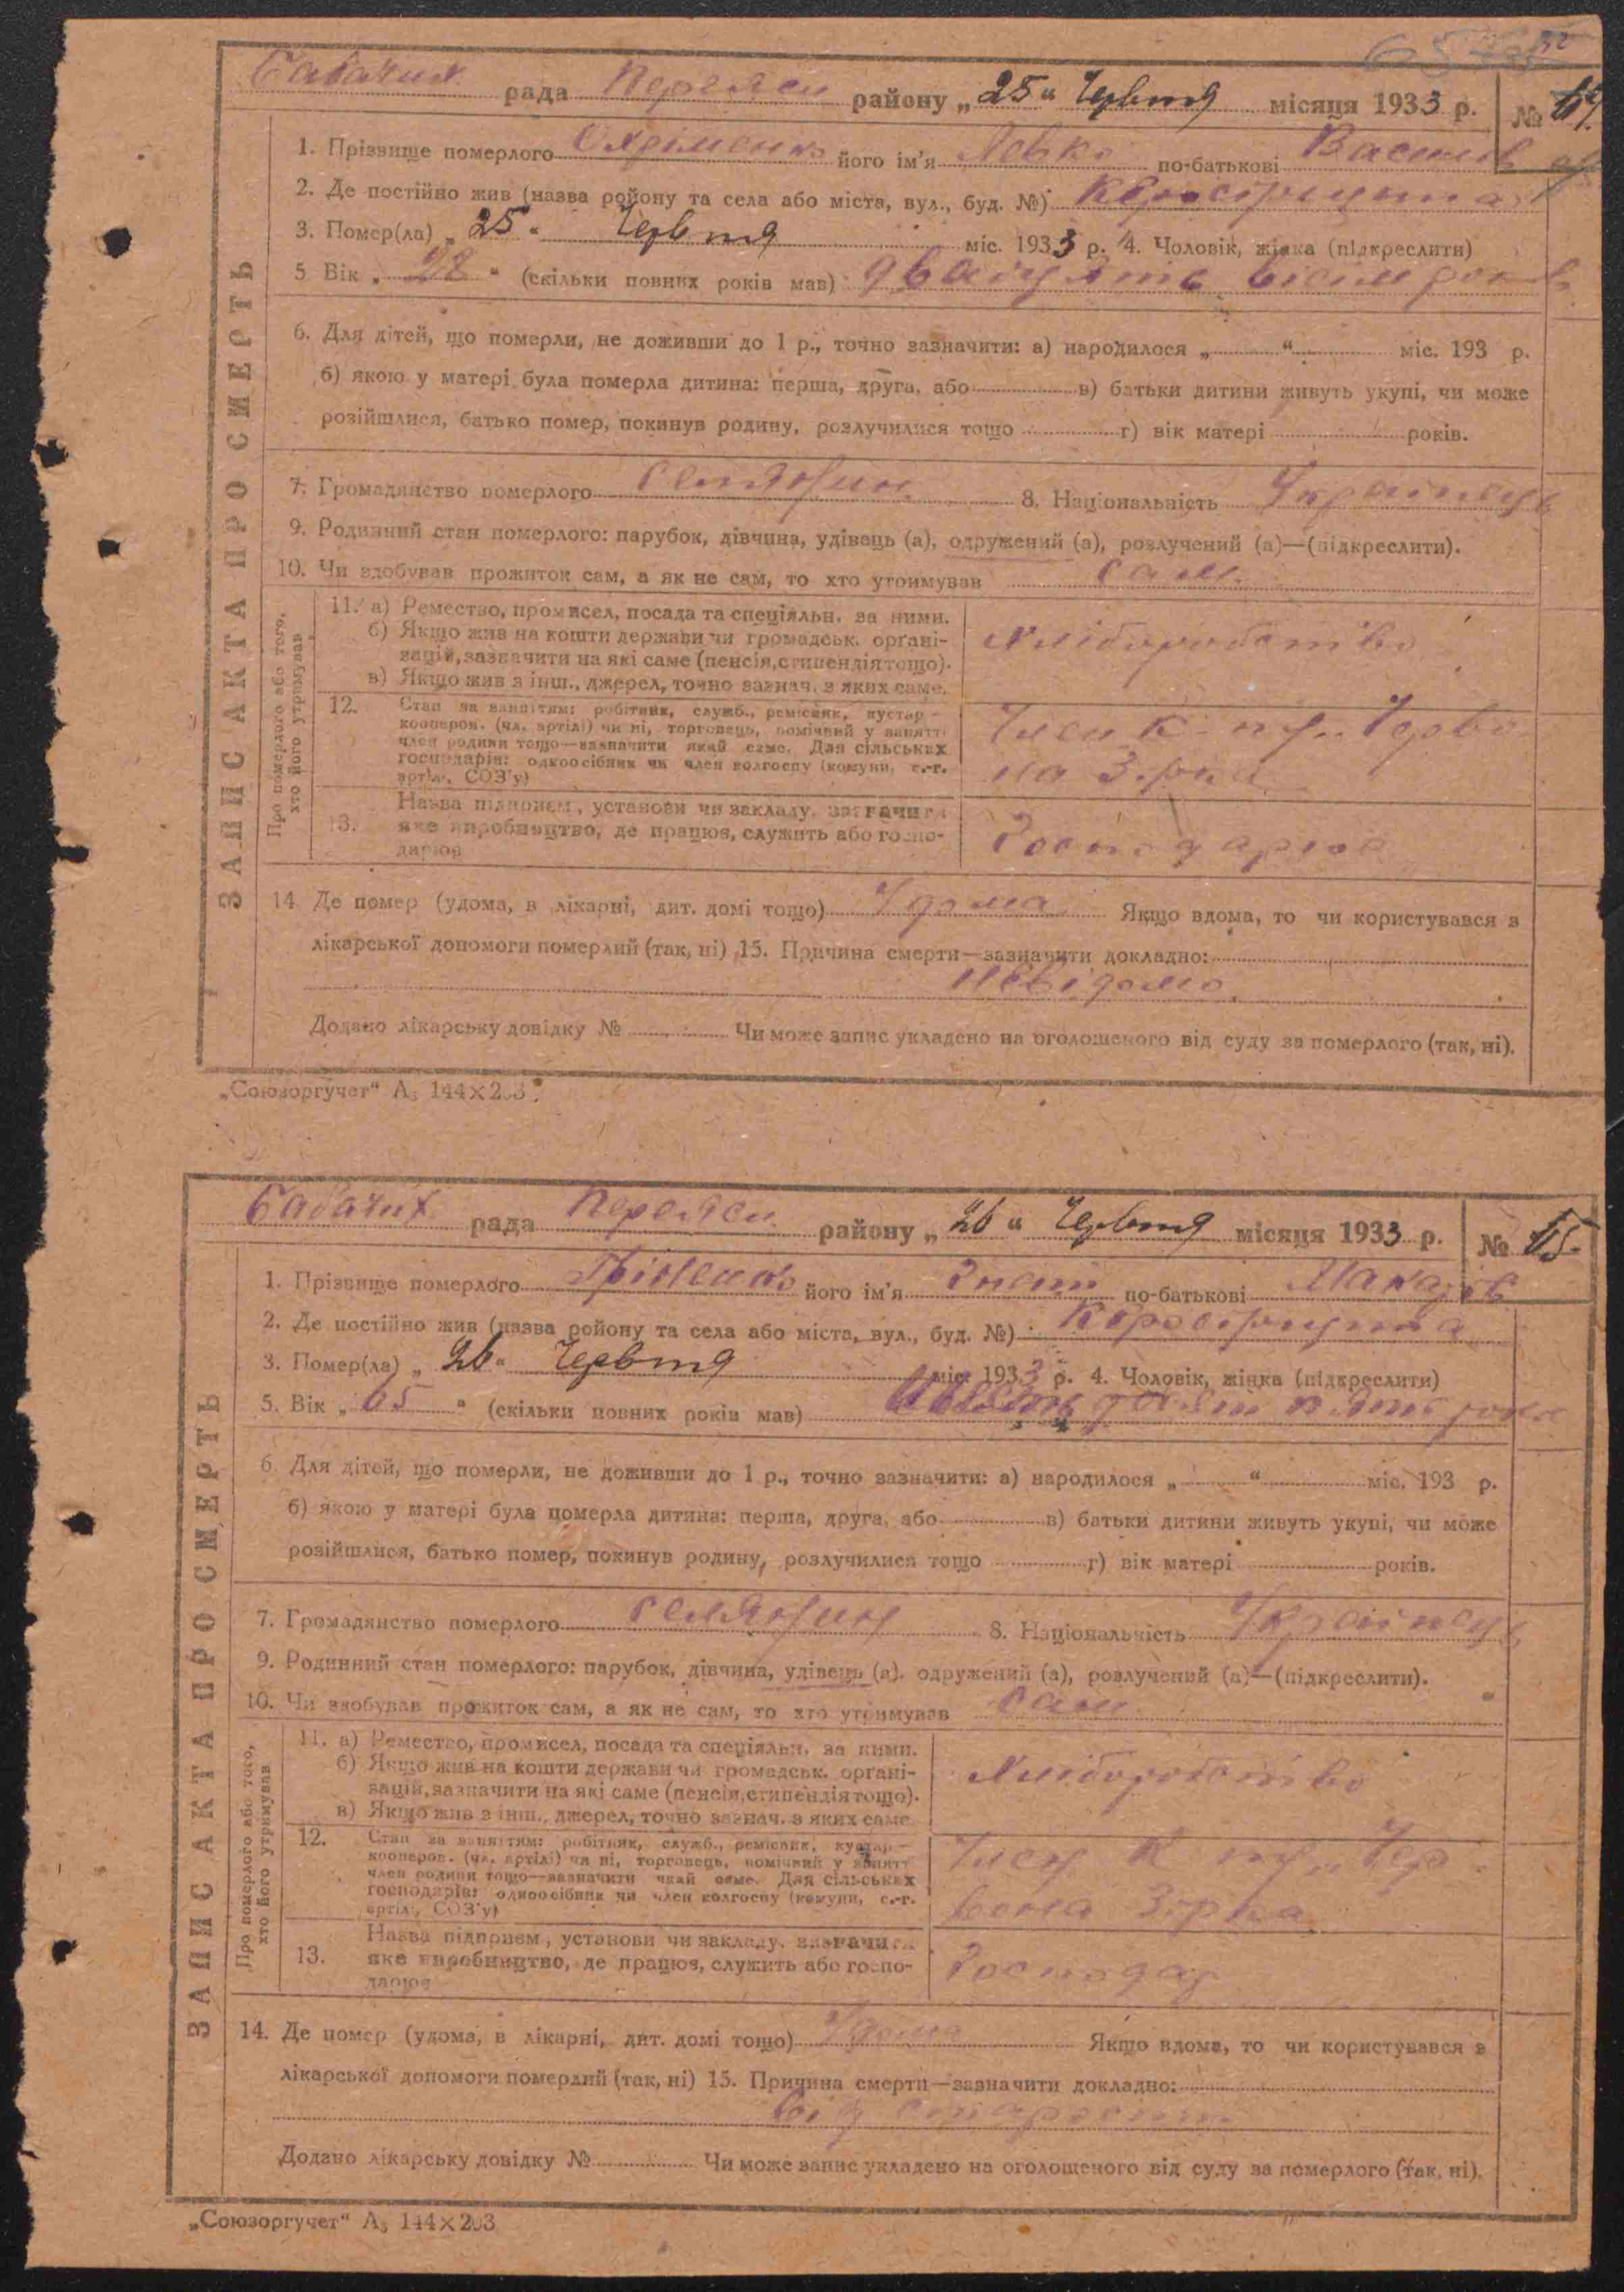 Переяси
рада району „25“ Червтя місяця 1933 р. №
1. Прізвище померлого Охріменко його ім'я Левко по-батькові Васильов
2. Де постійно жив (назва ройону та села або міста, вул., буд. №)
3. Помер(ла) „25“ Червтя міс. 1933 р. 4. Чоловік, жінка (підкреслити)
5 Вік „28“ (скільки повних років мав) двадцять вісім років
6. Для дітей, що померли, не доживши до 1 р., точно зазначити: а) народилося „ “ міс. 193 р.
б) якою у матері була померла дитина: перша, друга, або в) батьки дитини живуть укупі, чи може
розійшлися, батько помер, покинув родину, розлучилися тощо г) вік матері років.
7. Громадянство померлого селянин 8. Національність Українець
9. Родинний стан померлого: парубок, дівчина, удівець (а), одружений (а), розлучений (а)—(підкреслити).
10. Чи здобував прожиток сам, а як не сам, то хто утримував сам.
ЗАПИС АКТА ПРО СМЕРТЬ
Про померлого або того,
хто його утримував
11. а) Ремество, промисел, посада та спеціяльн. за ними.
б) Якщо жив на кошти держави чи громадськ. органі-
зацій, зазначити на які саме (пенсія, стипендія тощо).
в) Якщо жив з інш., джерел, точно зазнач. з яких саме.
Хліборобство
12. Стан за заняттям: робітник, служб., ремісник, кустар-
кооперов. (чл. артілі) чи ні, торговець, помічний у занятті
член родини тощо—зазначити який саме. Для сільських
господарів: одноосібник чи член колгоспу (комуни, с.-г.
артіл., СОЗ'у)
Член к Черво
на Зірка
13. Назва підприєм., установи чи закладу, зазначити
яке виробництво, де працює, служить або госпо-
дарює
Господарка
14 Де помер (удома, в лікарні, дит. домі тощо) Удома Якщо вдома, то чи користувався з
лікарської допомоги померлий (так, ні) 15. Причина смерти—зазначити докладно:
невідомо.
Додано лікарську довідку № Чи може запис укладено на оголошеного від суду за померлого (так, ні).
„Союзоргучет“ А₅ 144×203
Переяси
рада району „26“ Червтя місяця 1933 р. № 65.
1. Прізвище померлого його ім'я Гнат по-батькові Макарів
2. Де постійно жив (назва ройону та села або міста, вул., буд. №)
3. Помер(ла) „26“ Червтя міс. 1933 р. 4. Чоловік, жінка (підкреслити)
5. Вік „65“ (скільки повних років мав) шістьдесят пять років
6. Для дітей, що померли, не доживши до 1 р., точно зазначити: а) народилося „ “ міс. 193 р.
б) якою у матері була померла дитина: перша, друга, або в) батьки дитини живуть укупі, чи може
розійшлися, батько помер, покинув родину, розлучилися тощо г) вік матері років.
7. Громадянство померлого селянин 8. Національність Українець
9. Родинний стан померлого: парубок, дівчина, удівець (а), одружений (а), розлучений (а)—(підкреслити).
10. Чи здобував прожиток сам, а як не сам, то хто утримував сам
ЗАПИС АКТА ПРО СМЕРТЬ
Про померлого або того,
хто його утримував
11. а) Ремество, промисел, посада та спеціяльн. за ними.
б) Якщо жив на кошти держави чи громадськ. органі-
зацій, зазначити на які саме (пенсія, стипендія тощо).
в) Якщо жив з інш., джерел, точно зазнач. з яких саме
Хліборобство
12. Стан за заняттям: робітник, служб., ремісник, кустар-
кооперов. (чл. артілі) чи ні, торговець, помічний у занятті
член родини тощо—зазначити який саме. Для сільських
господарів: одноосібник чи член колгоспу (комуни, с.-г.
артіл., СОЗ'у)
Член к Чер
вона Зірка
13. Назва підприєм., установи чи закладу, зазначити
яке виробництво, де працює, служить або госпо-
дарює
Господар
14. Де помер (удома, в лікарні, дит. домі тощо) Удома Якщо вдома, то чи користувався з
лікарської допомоги померлий (так, ні) 15. Причина смерти—зазначити докладно:
Від старости
Додано лікарську довідку № Чи може запис укладено на оголошеного від суду за померлого (так, ні).
„Союзоргучет“ А₅ 144×203